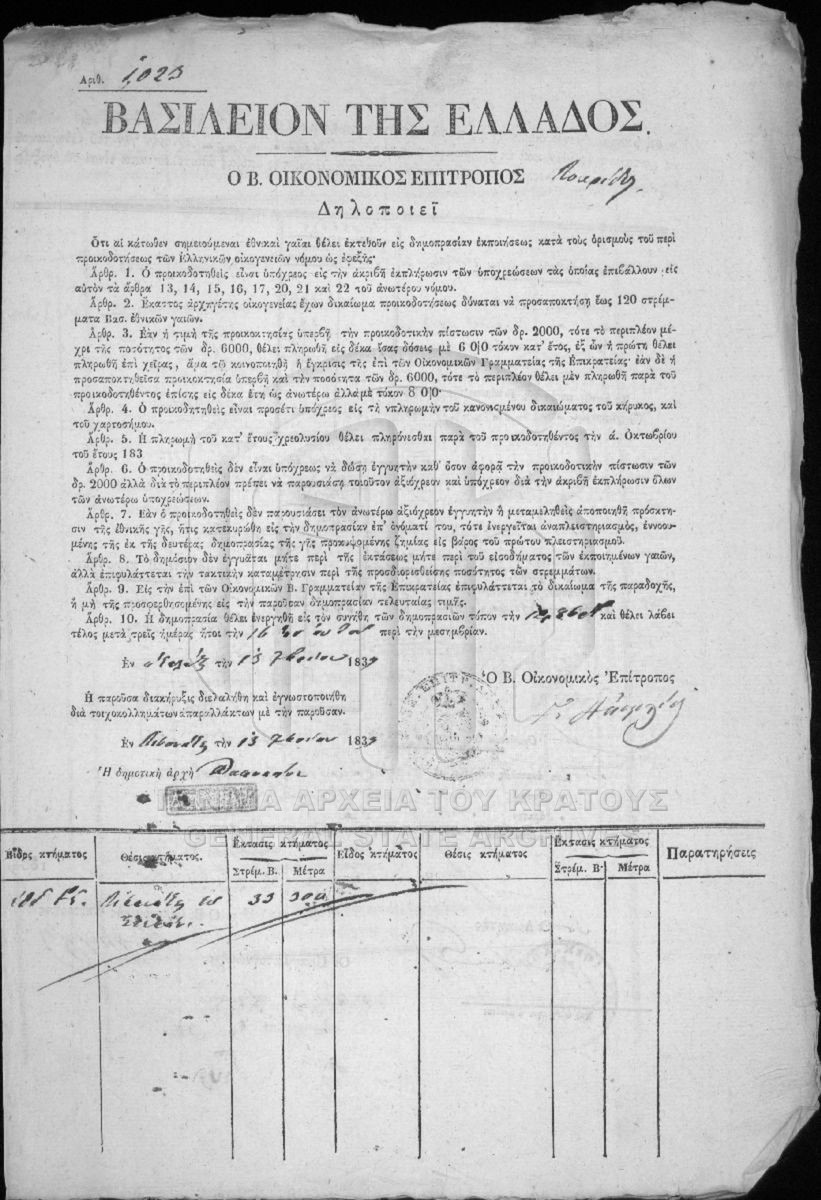 Αριθ. 1023
ΒΑΣΙΛΕΙΟΝ ΤΗΣ ΕΛΛΑΔΟΣ.
Ο Β. ΟΙΚΟΝΟΜΙΚΟΣ ΕΠΙΤΡΟΠΟΣ
Δηλοποιεῖ
Ὅτι αἱ κάτωθεν σημειούμεναι ἐθνικαὶ γαῖαι θέλει ἐκτεθοῦν εἰς δημοπρασίαν ἐκποιήσεως κατὰ τοὺς ὁρισμοὺς τοῦ περὶ
προικοδοτήσεως τῶν Ἑλληνικῶν οἰκογενειῶν νόμου ὡς ἐφεξῆς·
Ἄρθρ. 1. Ὁ προικοδοτηθεὶς εἶναι ὑπόχρεος εἰς τὴν ἀκριβῆ ἐκπλήρωσιν τῶν ὑποχρεώσεων τὰς ὁποίας ἐπιβάλλουν εἰς
αὐτὸν τὰ ἄρθρα 13, 14, 15, 16, 17, 20, 21 καὶ 22 τοῦ ἀνωτέρω νόμου.
Ἄρθρ. 2. Ἕκαστος ἀρχηγέτης οἰκογενείας ἔχων δικαίωμα προικοδοτήσεως δύναται νὰ προσαποκτήσῃ ἕως 120 στρέμ-
ματα Βασ. ἐθνικῶν γαιῶν.
Ἄρθρ. 3. Ἐὰν ἡ τιμὴ τῆς προικοκτησίας ὑπερβῇ τὴν προικοδοτικὴν πίστωσιν τῶν δρ. 2000, τότε τὸ περιπλέον μέ-
χρι τῆς ποσότητος τῶν δρ. 6000, θέλει πληρωθῆ εἰς δέκα ἴσας δόσεις μὲ 6 0|0 τόκον κατ' ἔτος, ἐξ ὧν ἡ πρώτη θέλει
πληρωθῆ ἐπὶ χεῖρας, ἅμα τῷ κοινοποιηθῇ ἡ ἔγκρισις τῆς ἐπὶ τῶν Οἰκονομικῶν Γραμματείας τῆς Ἐπικρατείας· ἐὰν δὲ ἡ
προσαποκτηθεῖσα προικοκτησία ὑπερβῇ καὶ τὴν ποσότητα τῶν δρ. 6000, τότε τὸ περιπλέον θέλει μὲν πληρωθῆ παρὰ τοῦ
προικοδοτηθέντος ἐπίσης εἰς δέκα ἔτη ὡς ἀνωτέρω ἀλλὰ μὲ τόκον 8 0|0·
Ἄρθρ. 4. Ὁ προικοδοτηθεὶς εἶναι προσέτι ὑπόχρεος εἰς τὴν πληρωμὴν τοῦ κανονισμένου δικαιώματος τοῦ κήρυκος, καὶ
τοῦ χαρτοσήμου.
Ἄρθρ. 5. Ἡ πληρωμὴ τοῦ κατ' ἔτους χρεολυσίου θέλει πληρόνεσθαι παρὰ τοῦ προικοδοτηθέντος τὴν ά. Ὀκτωβρίου
τοῦ ἔτους 183
Ἄρθρ. 6. Ὁ προικοδοτηθεὶς δὲν εἶναι ὑπόχρεως νὰ δώσῃ ἐγγυητὴν καθ' ὅσον ἀφορᾷ τὴν προικοδοτικὴν πίστωσιν τῶν
δρ. 2000 ἀλλὰ διὰ τὸ περιπλέον πρέπει νὰ παρουσιάσῃ τοιοῦτον ἀξιόχρεον καὶ ὑπόχρεον διὰ τὴν ἀκριβῆ ἐκπλήρωσιν ὅλων
τῶν ἀνωτέρω ὑποχρεώσεων.
Ἄρθρ. 7. Ἐὰν ὁ προικοδοτηθεὶς δὲν παρουσιάσει τὸν ἀνωτέρω ἀξιόχρεον ἐγγυητὴν ἢ μεταμεληθεὶς ἀποποιηθῇ πρόσκτη-
σιν τῆς ἐθνικῆς γῆς, ἥτις κατεκυρώθη εἰς τὴν δημοπρασίαν ἐπ' ὀνόματί του, τότε ἐνεργεῖται ἀναπλειστηριασμὸς, ἐννοου-
μένης τῆς ἐκ τῆς δευτέρας δημοπρασίας τῆς γῆς προκυψομένης ζημίας εἰς βάρος τοῦ πρώτου πλειστηριασμοῦ.
Ἄρθρ. 8. Τὸ δημόσιον δὲν ἐγγυᾶται μήτε περὶ τῆς ἐκτάσεως μήτε περὶ τοῦ εἰσοδήματος τῶν ἐκποιημένων γαιῶν,
ἀλλὰ ἐπιφυλάττεται τὴν τακτικὴν καταμέτρησιν περὶ τῆς προσδιορισθείσης ποσότητος τῶν στρεμμάτων.
Ἄρθρ. 9. Εἰς τὴν ἐπὶ τῶν Οἰκονομικῶν Β. Γραμματείαν τῆς Ἐπικρατείας ἐπιφυλάττεται τὸ δικαίωμα τῆς παραδοχῆς,
ἢ μὴ τῆς προσφερθησομένης εἰς τὴν παροῦσαν δημοπρασίαν τελευταίας τιμῆς.
Ἄρθρ. 10. Ἡ δημοπρασία θέλει ἐνεργηθῆ εἰς τὸν συνήθη τῶν δημοπρασιῶν τόπον τὴν καὶ θέλει λάβει
τέλος μετὰ τρεῖς ἡμέρας ἤτοι τὴν 16 περὶ τὴν μεσημβρίαν.
Ἐν τὴν 13 1839
Ὁ Β. Οἰκονομικὸς Ἐπίτροπος
Ἡ παροῦσα διακήρυξις διελαλήθη καὶ ἐγνωστοποιήθη
διὰ τοιχοκολλημάτων ἀπαραλλάκτων μὲ τὴν παροῦσαν.
Ἐν τὴν 13 1839
Ἡ δημοτικὴ ἀρχὴ
ΓΕΝΙΚΑ ΑΡΧΕΙΑ ΤΟΥ ΚΡΑΤΟΥΣ
GENERAL STATE ARCHIVES
Εἶδος κτήματος Θέσις κτήματος. Ἔκτασις κτήματος Εἶδος κτήματος Θέσις κτήματος Ἔκτασις κτήματος Παρατηρήσεις
Στρέμ. Β. Μέτρα Στρέμ. Β. Μέτρα
33 300